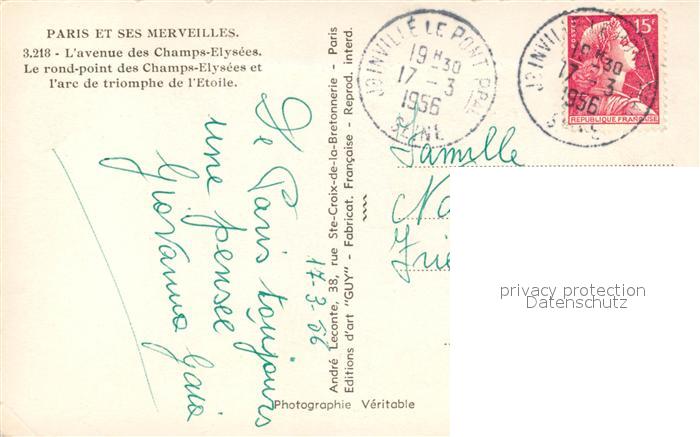 PARIS ET SES MERVEILLES.
3.218 - L'avenue des Champs-Elysées.
Le rond-point des Champs-Elysées et
l'arc de triomphe de l'Etoile.
De Paris toujours
une pensée
Giovanna Gaia
17-3-56
André Leconte, 38, rue Ste-Croix-de-la-Bretonnerie - Paris
Editions d'art "GUY" - Fabricat. Française - Reprod. interd.
Photographie Véritable
JOINVILLE LE PONT PPAL
19 H30
17 - 3
1956
SEINE
JOINVILLE
19 H30
17 - 3
1956
SEINE
POSTES
15F
REPUBLIQUE FRANÇAISE
Famille
privacy protection
Datenschutz